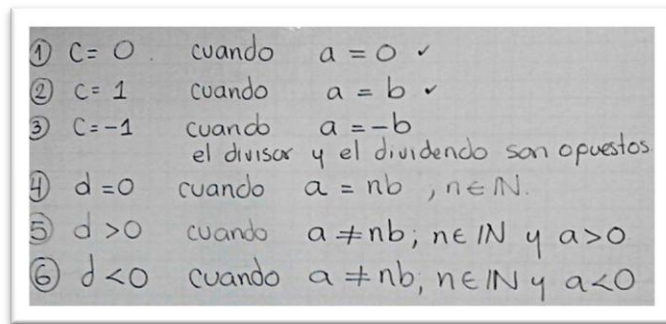 ① C = 0. cuando a = 0 ✓
② C = 1 cuando a = b ✓
③ C = -1 cuando a = -b
el divisor y el dividendo son opuestos
④ d = 0 cuando a = nb , n ∈ IN.
⑤ d > 0 cuando a ≠ nb; n ∈ IN y a > 0
⑥ d < 0 cuando a ≠ nb; n ∈ IN y a < 0